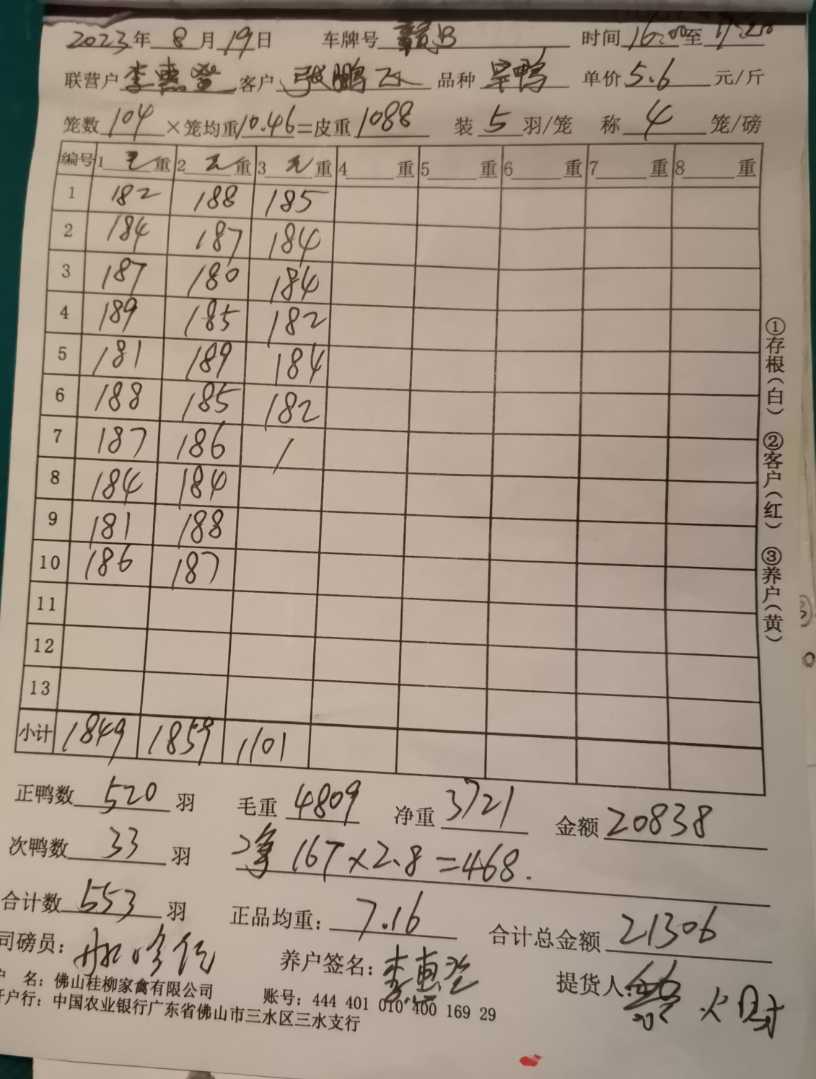 2023年8月19日 车牌号 赣B 时间16:00至
联营户 李惠登 客户 张鹏飞 品种 旱鸭 单价5.6 元/斤
笼数 104 ×笼均重10.46=皮重1088 装 5 羽/笼 称 4 笼/磅
编号 1 毛 重 2 毛 重 3 毛 重 4 重 5 重 6 重 7 重 8 重
1 182 188 185
2 184 187 184
3 187 180 184
4 189 185 182
5 181 189 184
6 188 185 182
7 187 186 /
8 184 184
9 181 188
10 186 187
11
12
13
小计 1849 1859 1101
正鸭数 520 羽 毛重 4809 净重 3721 金额 20838
次鸭数 33 羽 净 167×2.8=468.
合计数 553 羽 正品均重: 7.16 合计总金额 21306
司磅员: 养户签名: 李惠登 提货人:
户 名: 佛山桂柳家禽有限公司 账号: 444 401 010 400 169 29
开户行: 中国农业银行广东省佛山市三水区三水支行
①存根(白) ②客户(红) ③养户(黄)